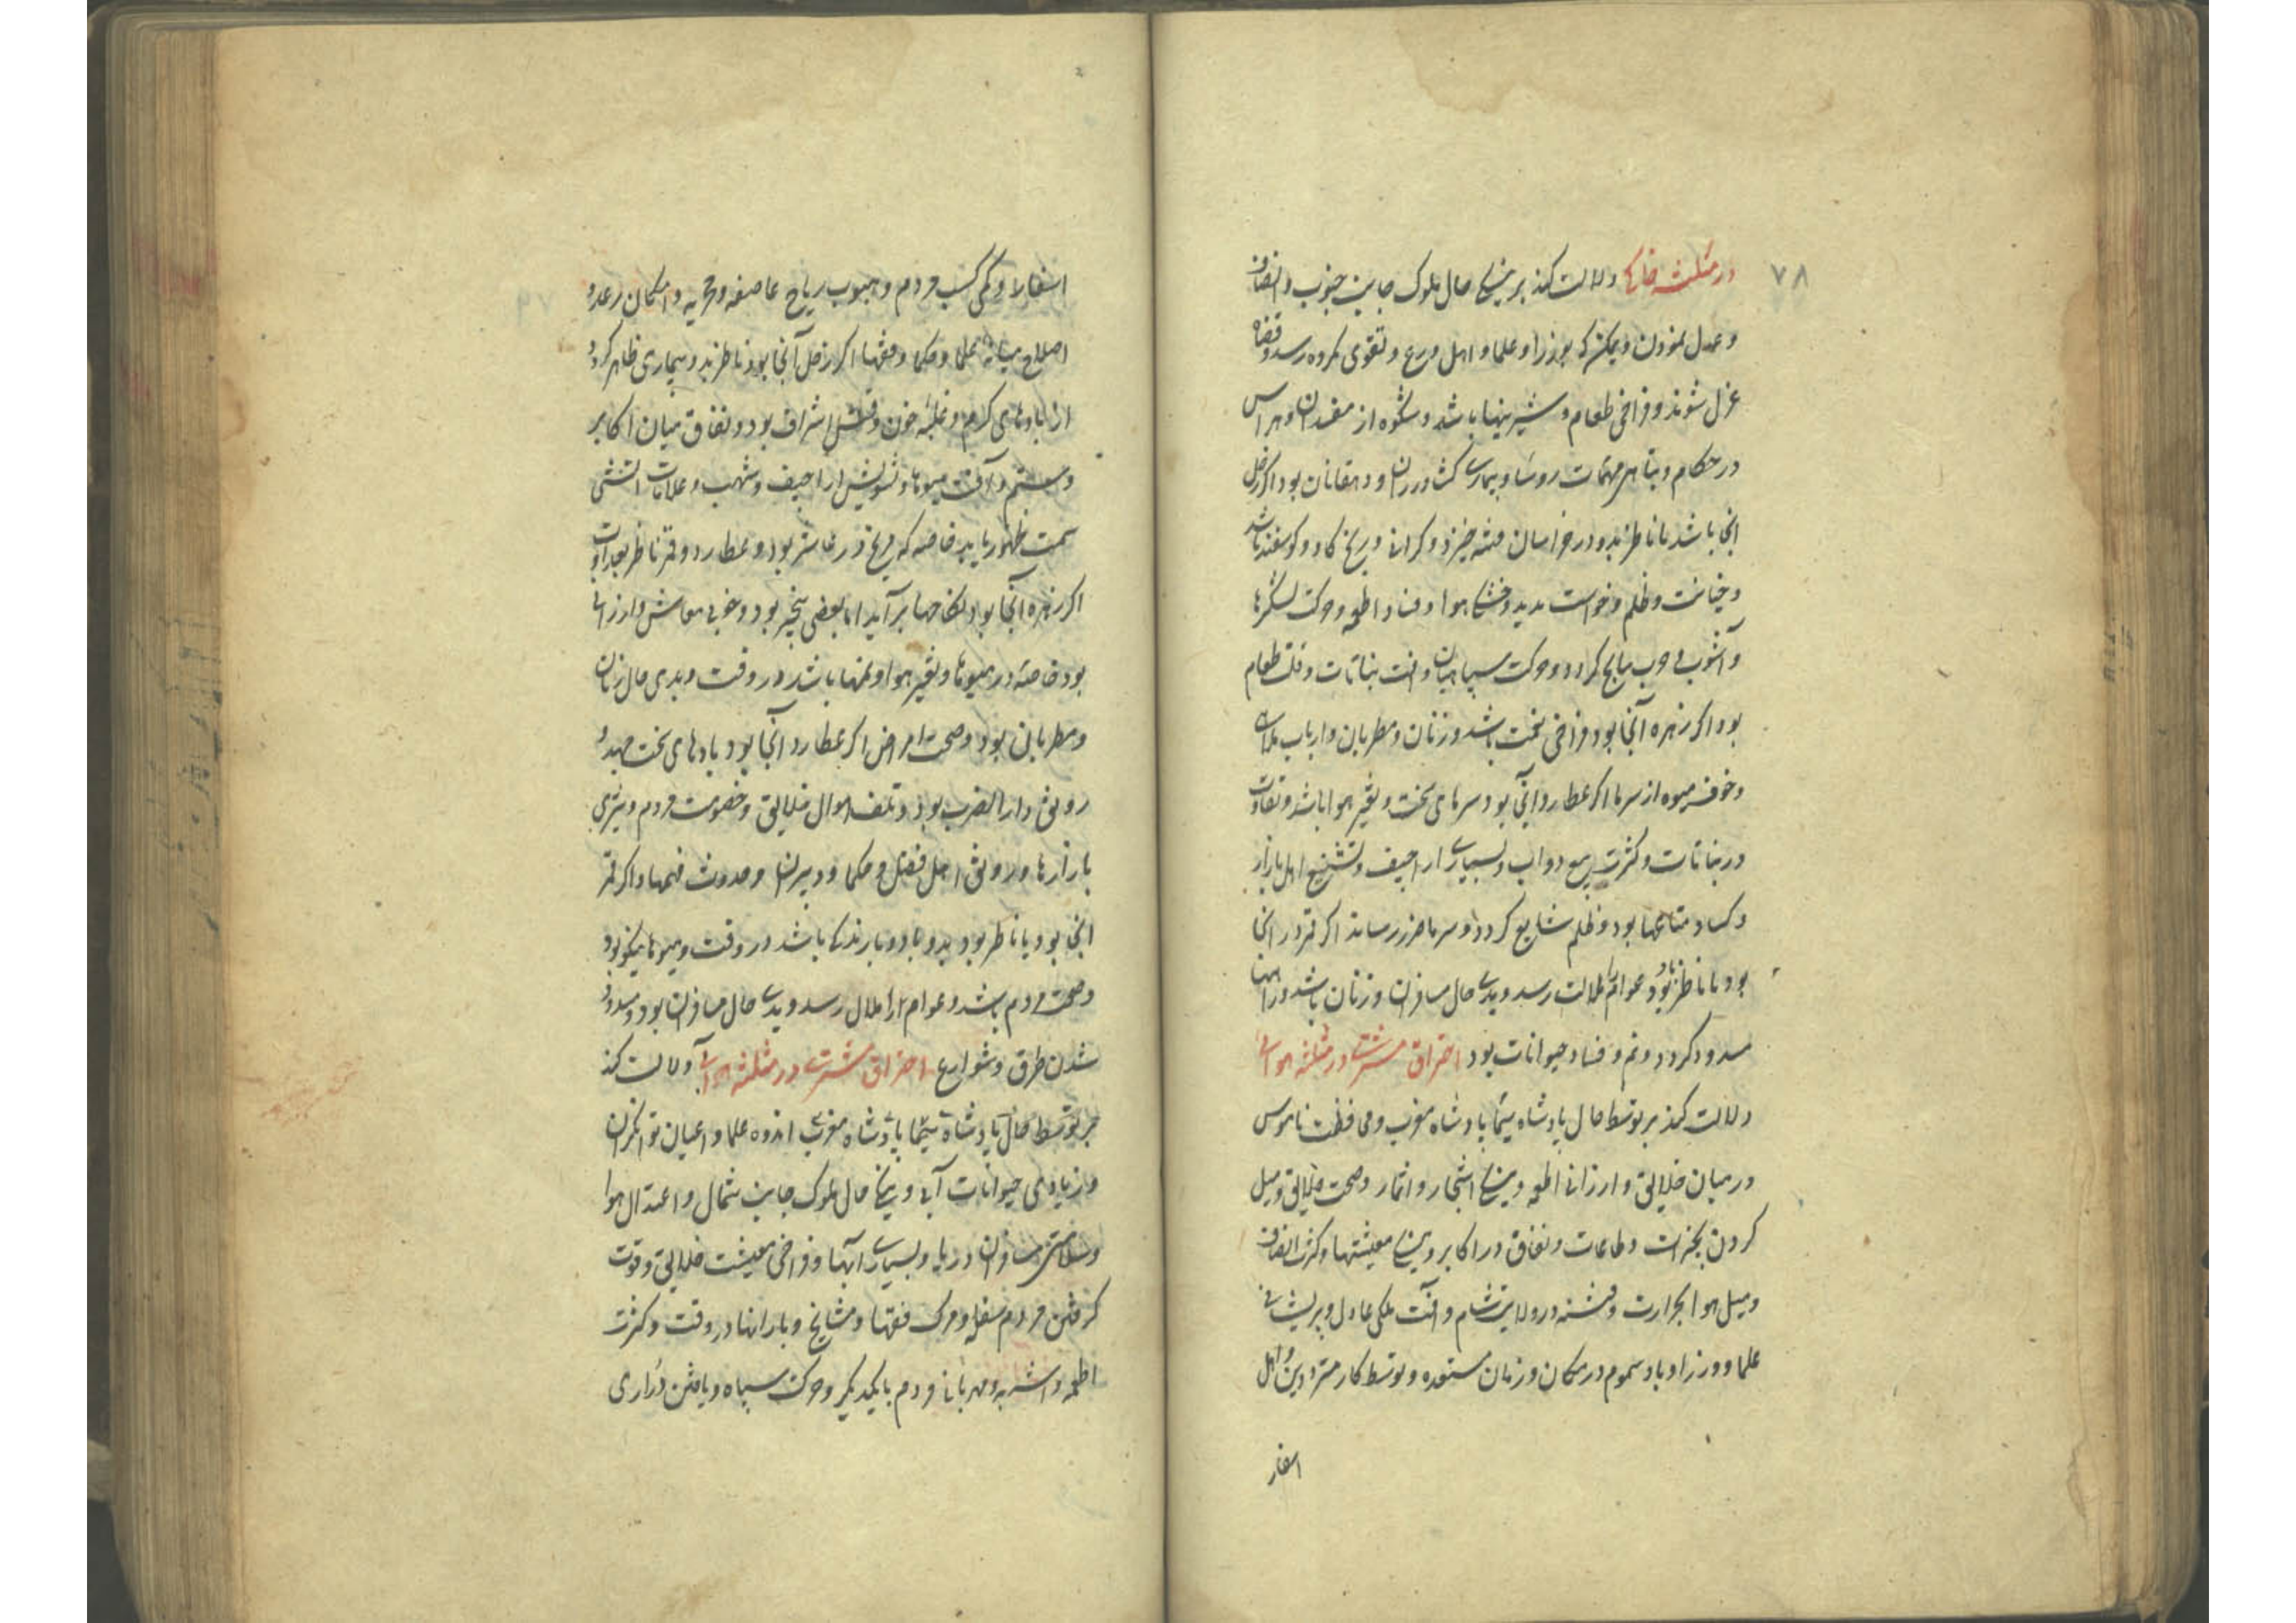 ۷۸
در مثلثه خاکی دلالت کند بر نیکی حال ملوک جانب جنوب و انصاف
و عدل نمودن و ممکن که بوزرا و علما و اهل ورع و تقوی مکروه رسد و قضاة
عزل شوند و فراخی طعام و شیرینیها باشد و شکوه از مفسدان و هراس
در حکام و تباهی مهمات روسا و بیماری کشاورزان و دهقانان بود اکر زحل
انجا باشد یا ناظر بدو در خراسان فتنه خیزد و کرانی و رنج کاو و کوسفند باشد
و خیانت و ظلم و خواست پدید و خشکی هوا و فساد اطعمه و حرکت لشکرها
و آشوب و حرب سانح کردد و حرکت سپاهیان و آفت نباتات و قلت طعام
بود اکر زهره آنجا بود فراخی سخت باشد و زنان و مطربان و ارباب ملاهی
و خوف میوه از سرما اکر عطارد آنجا بود سرمای سخت و تغیر هوا باشد و تفاوت
در نباتات و کثرت بیع دواب و بسیاری اراجیف و تشنیع اهل بازار
و کساد متاعها بود و ظلم شایع کردد و سرما ضرر رساند اکر قمر در انجا
بود یا ناظر بود عوام را ملالت رسد و بدی حال مسافران و زنان باشد و راهها
مسدود کردد و غم و فساد حیوانات بود احتراق مشتری در مثلثه هوائی
دلالت کند بر توسط حال پادشاه سیما پادشاه مغرب و محافظت ناموس
در میان خلایق و ارزانی اطعمه و نیکی اشجار و اثمار و صحت خلایق و میل
کردن بخیرات و طاعات و نفاق در اکابر و نیکی معیشتها و کثرت انصاف
و میل هوا بحرارت و فتنه در ولایت شام و آفت ملکی عادل و پریشانی
علما و وزرا و باد سموم در مکان و زمان مستعده و توسط کار متردین و اهل
اسفار
اسفار و کمی کسب مردم و هبوب ریاح عاصفه و محرقه و امکان رعد و
اصلاح میانه علما و حکما و فقها اکر زحل آنجا بود یا ناظر بدو بیماری ظاهر کردد
از بادهای کرم و غلبه خون و قتل اشراف بود و نفاق میان اکابر
و ستم و آفت میوها و تشویش اراجیف و شهب و علامات آتشی
سمت ظهور یابد خاصه که مریخ در عاشر بود و عطارد و قمر ناظر بعداوت
اکر زهره آنجا بود نکاحها برآید اما بعضی بخیر بود و خوبی معاش و ارزانی
بود خاصه در میوها و تغیر هوا و نمها باشد در وقت و بدی حال زنان
و مطربان بود و صحت امراض اکر عطارد آنجا بود بادهای سخت جهد و
رونق دارالضرب بود و تلف اموال خلایق و خصومت مردم و تیزی
بازارها و رونق اهل فضل و حکما و دبیران و حدوث فهمها و اکر قمر
انجا بود یا ناظر بود بدو باد و بارندکی باشد در وقت و میوها نیکو بود
و صحت مردم باشد و عوام را ملال رسد و بدی حال مسافران بود و مسدود
شدن طرق و شوارع احتراق مشتری در مثلثه آبی دلالت کند
بر توسط حال پادشاه سیما پادشاه مغرب اندوه علما و اعیان توانکران
و زیادی حیوانات آبی و نیکی حال ملوک جانب شمال و اعتدال هوا
و سلامتی مسافران دریا و بسیاری آبها و فراخی معیشت خلایق و قوت
کرفتن مردم سفله و مرک فقها و مشایخ و بارانها در وقت و کثرت
اطعمه و اشربه و مهربانی مردم با یکدیکر و حرکت سپاه و یافتن ذراری